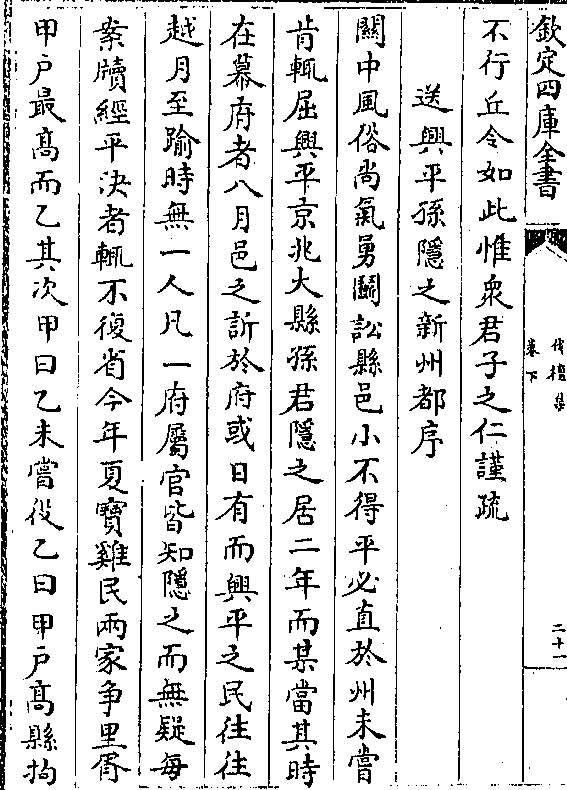 欽定四庫全書
伐檀集
卷下
二十一
不行丘令如此惟衆君子之仁謹疏
送興平孫隱之新州都序
關中風俗尚氣勇鬭訟縣邑小不得平必直於州未嘗
肯輒屈興平京兆大縣孫君隱之居二年而某當其時
在幕府者八月邑之訴於府或日有而興平之民往往
越月至踰時無一人凡一府屬官皆知隱之而無疑每
案牘經平決者輒不復省今年夏寳雞民兩家爭里胥
甲户最髙而乙其次甲曰乙未嘗役乙曰甲户髙縣拘